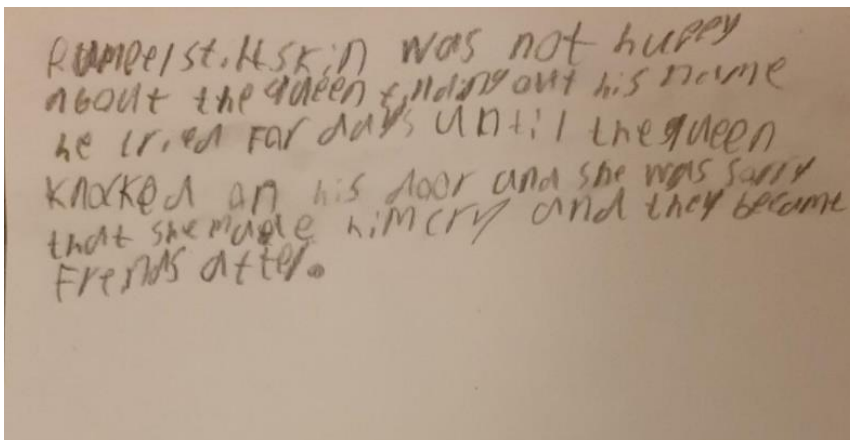 Rumpelstiltskin was not huppy
about the queen finding out his name
he cried For days until the queen
knocked on his door and she was sorry
that she made him cry and they became
Frends after.